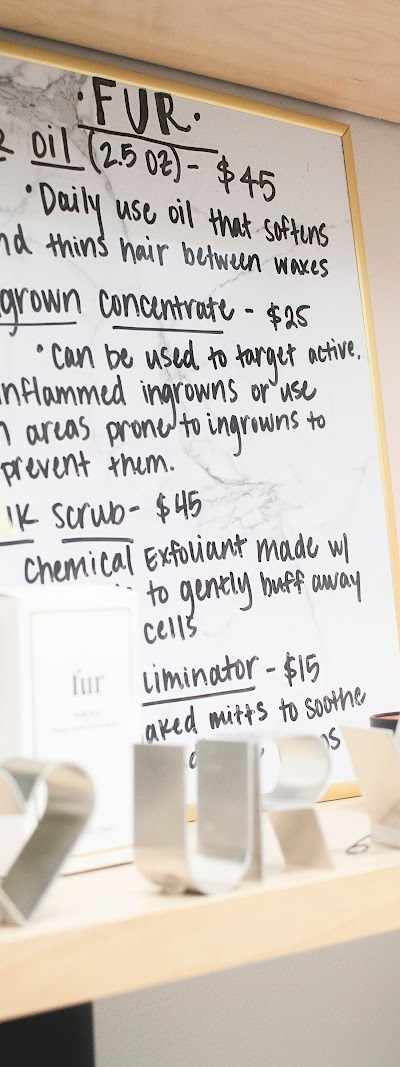 ·FUR·
oil (2.5 OZ) - $45
• Daily use oil that softens
nd thins hair between waxes
grown concentrate - $25
• can be used to target active,
nflammed ingrowns or use
n areas prone to ingrowns to
prevent them.
lk scrub - $45
Chemical Exfoliant made w/
to gently buff away
cells
liminator - $15
aked mitts to soothe
fur